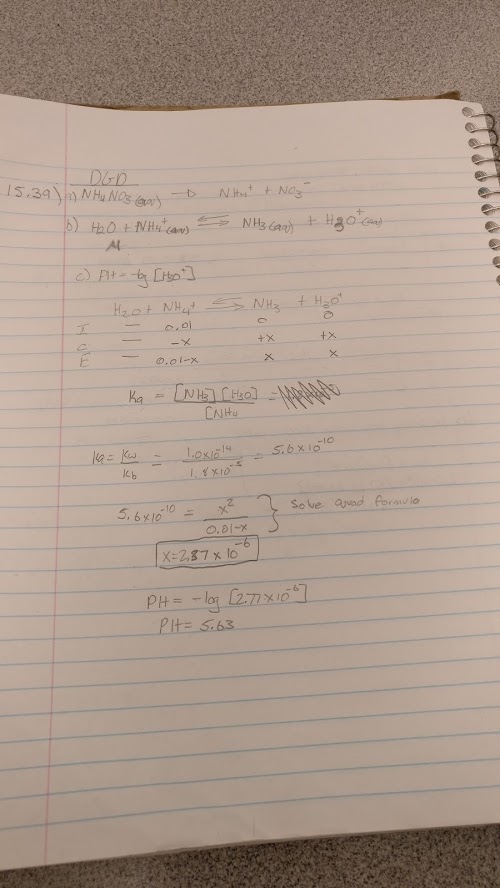 DGD
15.39) a) NH4NO3(aq) → NH4+ + NO3-
b) H2O + NH4+(aq) ⇌ NH3(aq) + H3O+(aq)
c) PH = -log [H3O+]
H2O + NH4+ ⇌ NH3 + H3O+
I — 0.01 0 0
C — -x +x +x
E — 0.01-x x x
Ka = [NH3] [H3O] / [NH4 =
Ka = Kw / Kb = 1.0x10-14 / 1.8x10-5 = 5.6x10-10
5.6x10-10 = x2 / 0.01-x } Solve quad formula
x = 2.37 x 10-6
PH = -log [2.77x10-6]
PH = 5.63